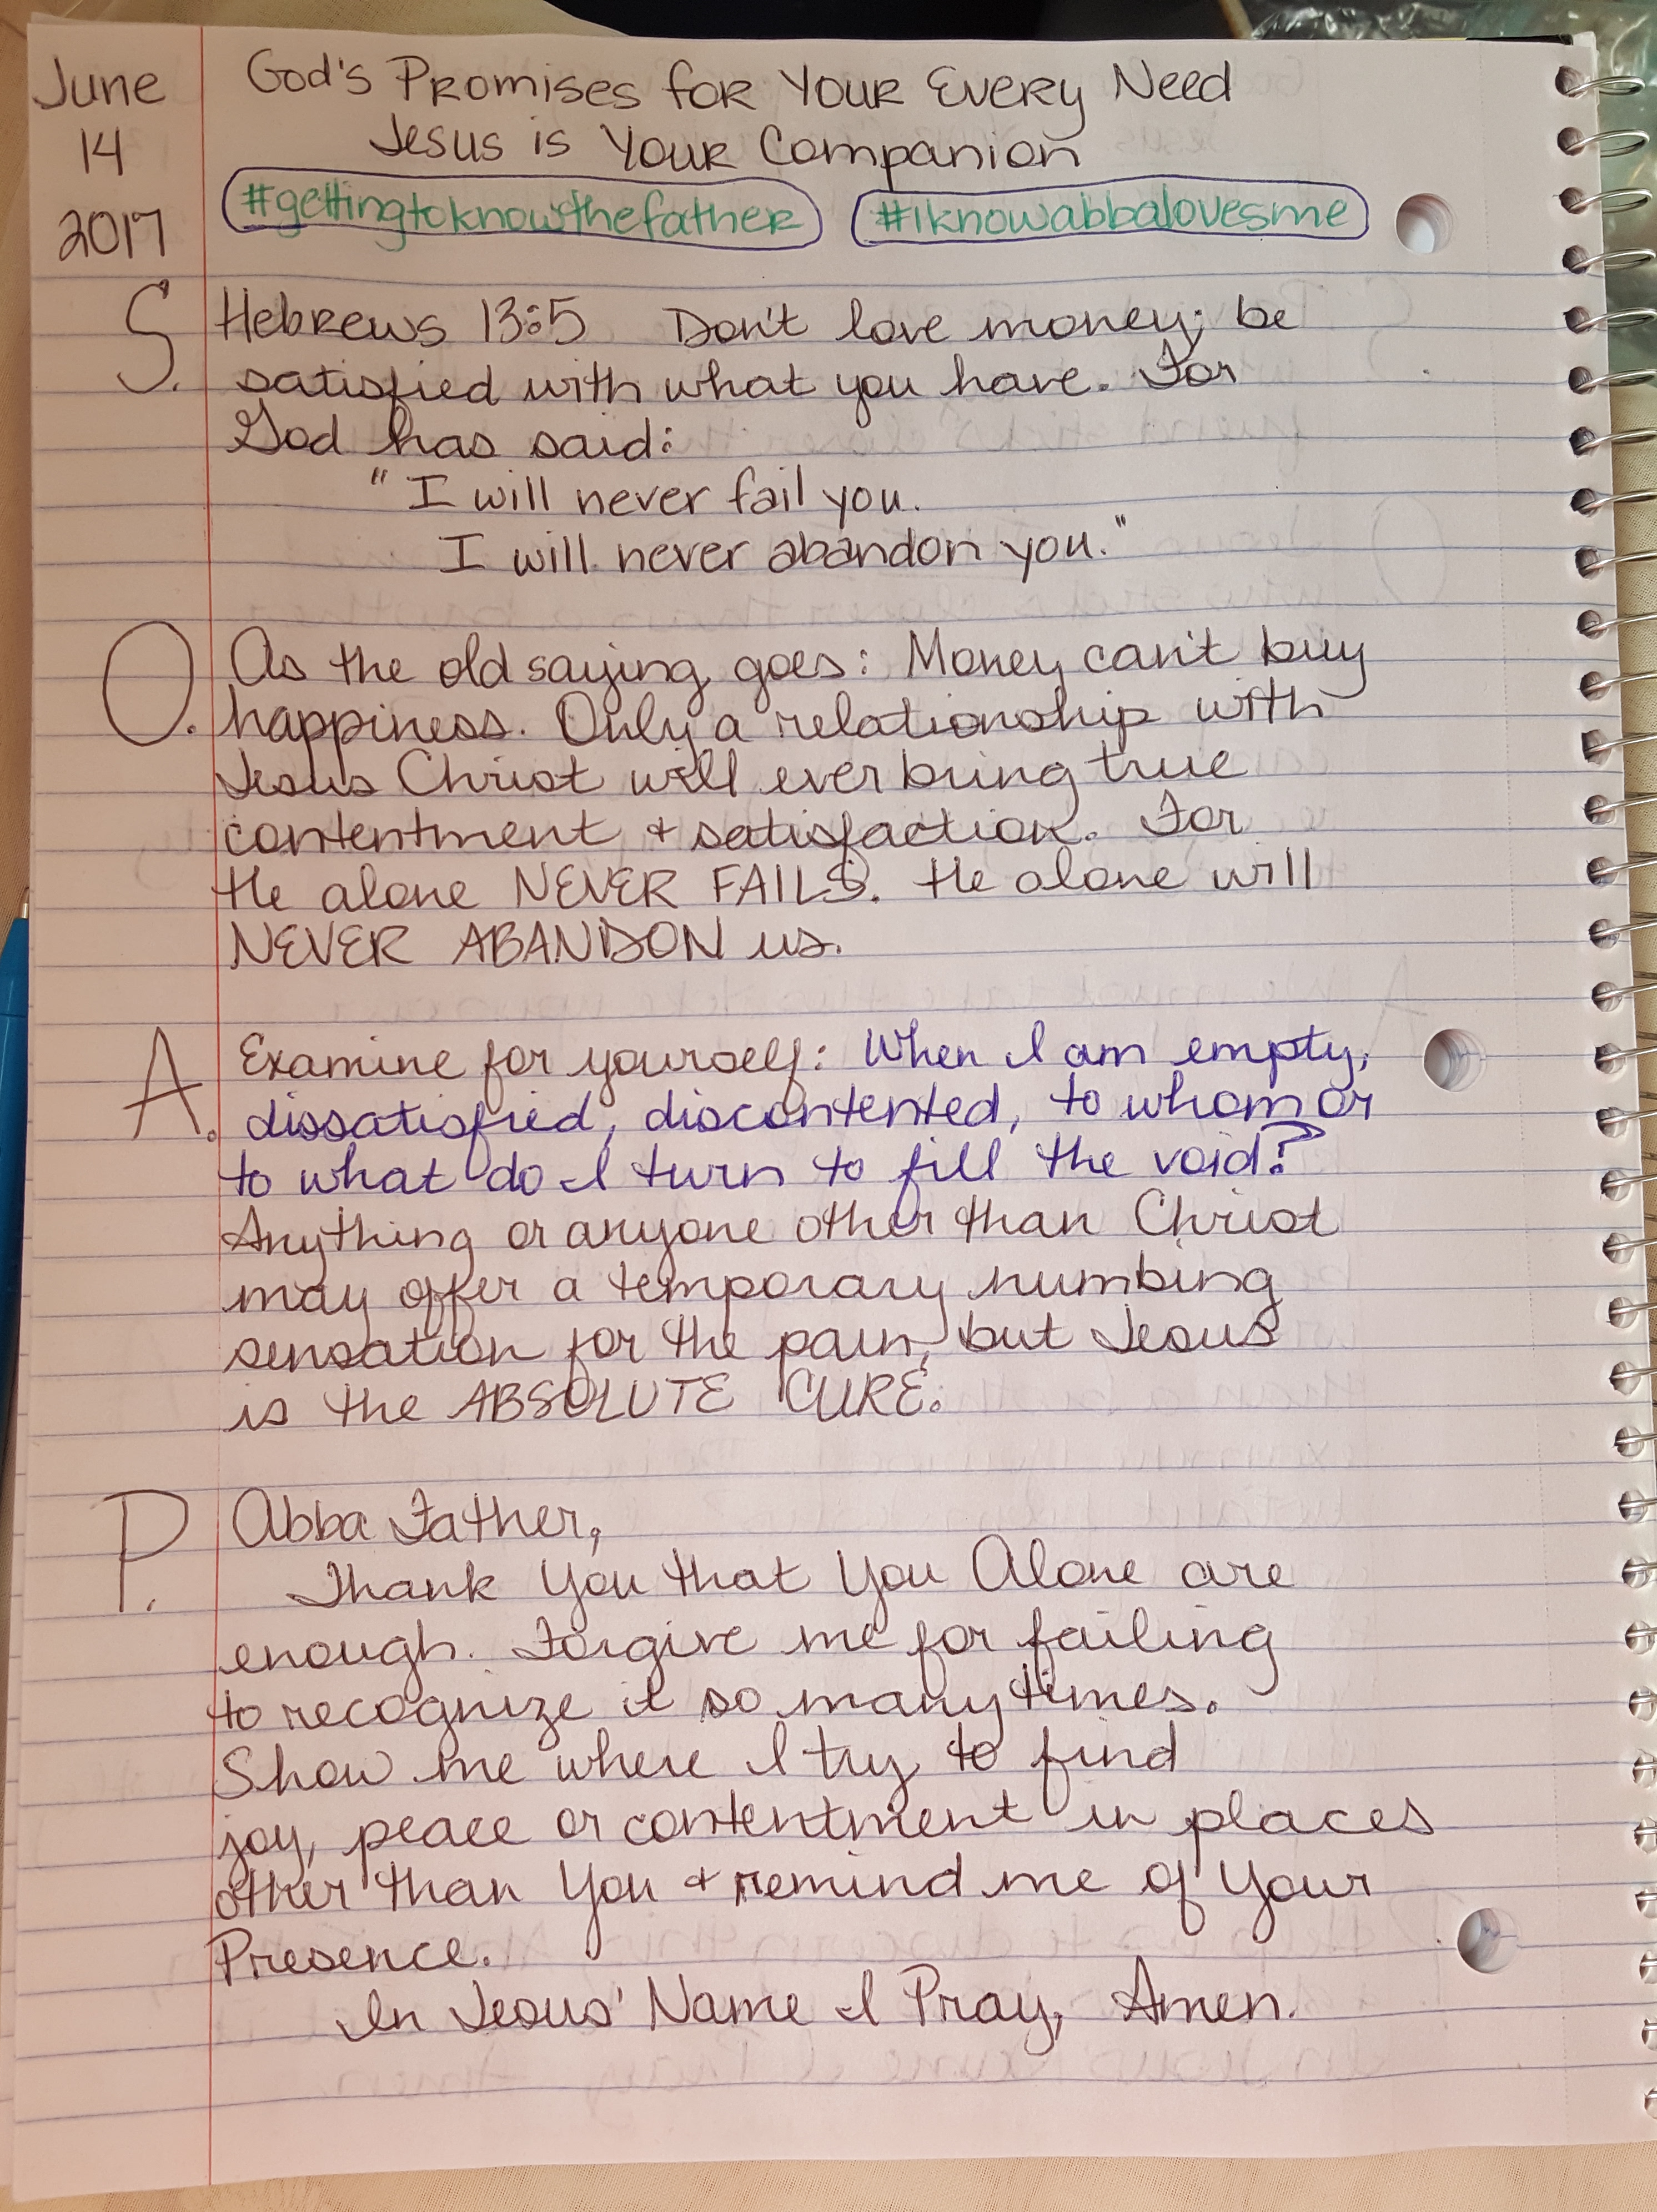 June
14
2017
God's Promises for Your Every Need
Jesus is Your Companion
#gettingtoknowthefather #iknowabbalovesme
S. Hebrews 13:5 Don't love money; be
satisfied with what you have. For
God has said:
"I will never fail you.
I will never abandon you."
O. As the old saying goes: Money can't buy
happiness. Only a relationship with
Jesus Christ will ever bring true
contentment + satisfaction. For
He alone NEVER FAILS. He alone will
NEVER ABANDON us.
A. Examine for yourself: When I am empty,
dissatisfied, discontented, to whom or
to what do I turn to fill the void?
Anything or anyone other than Christ
may offer a temporary numbing
sensation for the pain, but Jesus
is the ABSOLUTE CURE.
P. Abba Father,
Thank You that You Alone are
enough. Forgive me for failing
to recognize it so many times.
Show me where I try to find
joy, peace or contentment in places
other than You + remind me of Your
Presence.
In Jesus' Name I Pray, Amen.